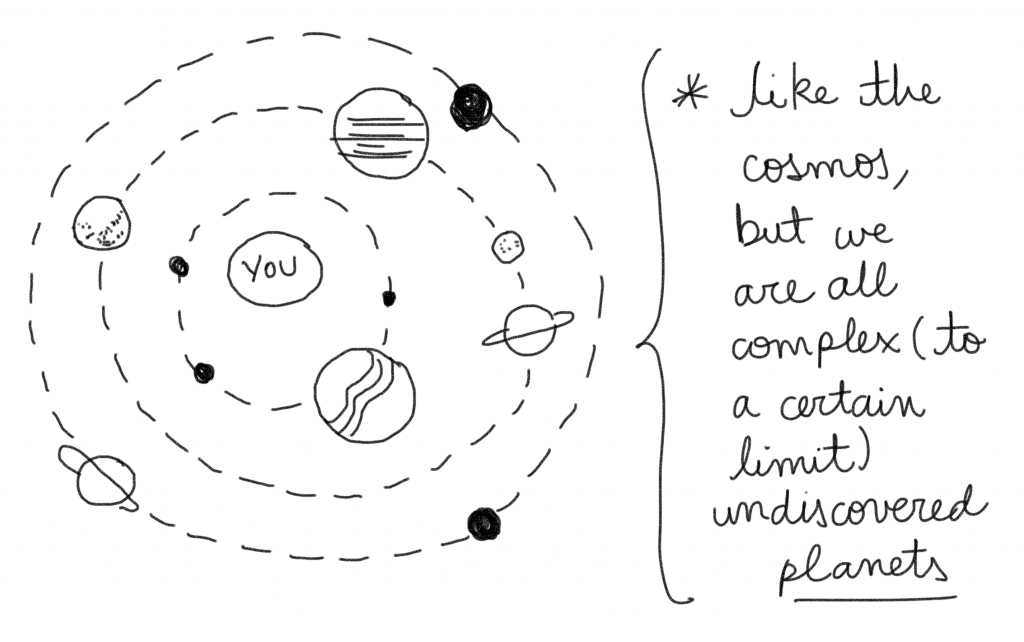 YOU
* like the
cosmos,
but we
are all
complex (to
a certain
limit)
undiscovered
planets